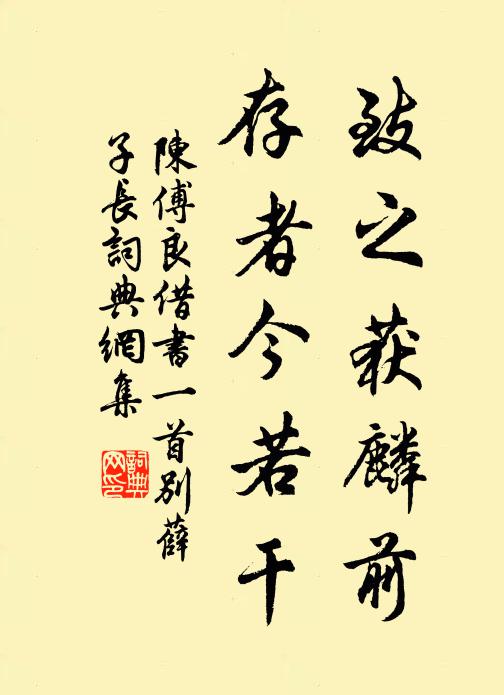 致之获麟前
存者今若干
陳傅良借書一首别薛
子長詞典網集
詞典网印